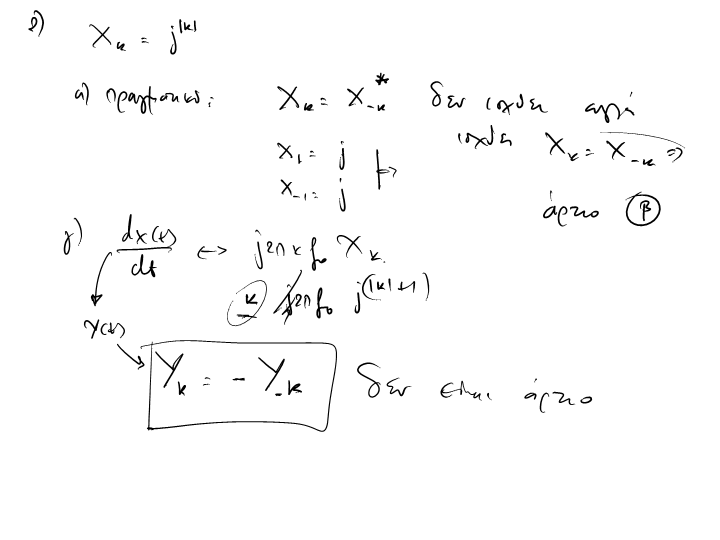 2) X_k = j^|k|
α) πραγματικό: X_k = X_{-k}^* δεν ισχύει αλλά
ισχύει X_k = X_{-k} ⇒
X_1 = j
X_{-1} = j
άρτιο (β)
γ) dx(t)/dt ↔ j2πkf_0 X_k
k 2πf_0 j^(|k|+1)
y(t)
Y_k = - Y_{-k} δεν είναι άρτιο